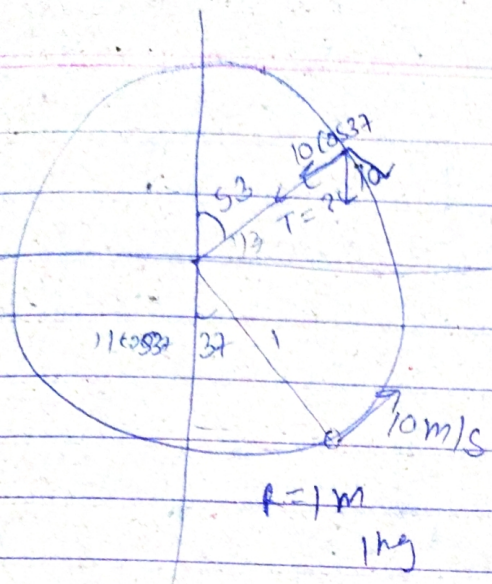 10 cos37
53
10
T = ?
11cos37
37
1
10m/s
R = 1 m
1kg